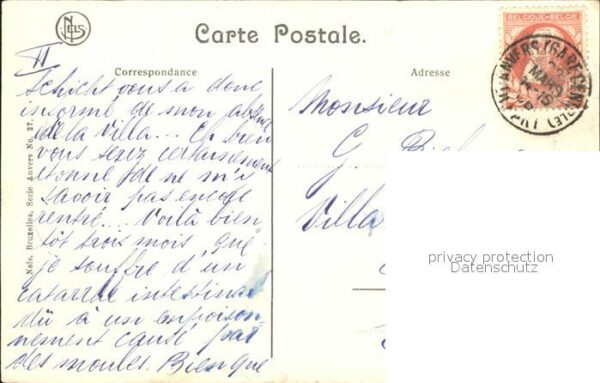 NELS
Carte Postale.
Correspondance
Adresse
BELGIQUE-BELGIE
ANVERS (GARE CENTRALE)
II
Schicht vous a donc
informé de mon absence
de la Villa... Eh bien
vous serez certainement
étonné de ne m'y
savoir pas encore
rentré... Voilà bien-
tôt trois mois que
je souffre d'un
catarrhe intestinal
dû à un empoison-
nement causé par
des moules. Bien que
Nels, Bruxelles, Serie Anvers No. 27.
Monsieur
G.
Villa
privacy protection
Datenschutz